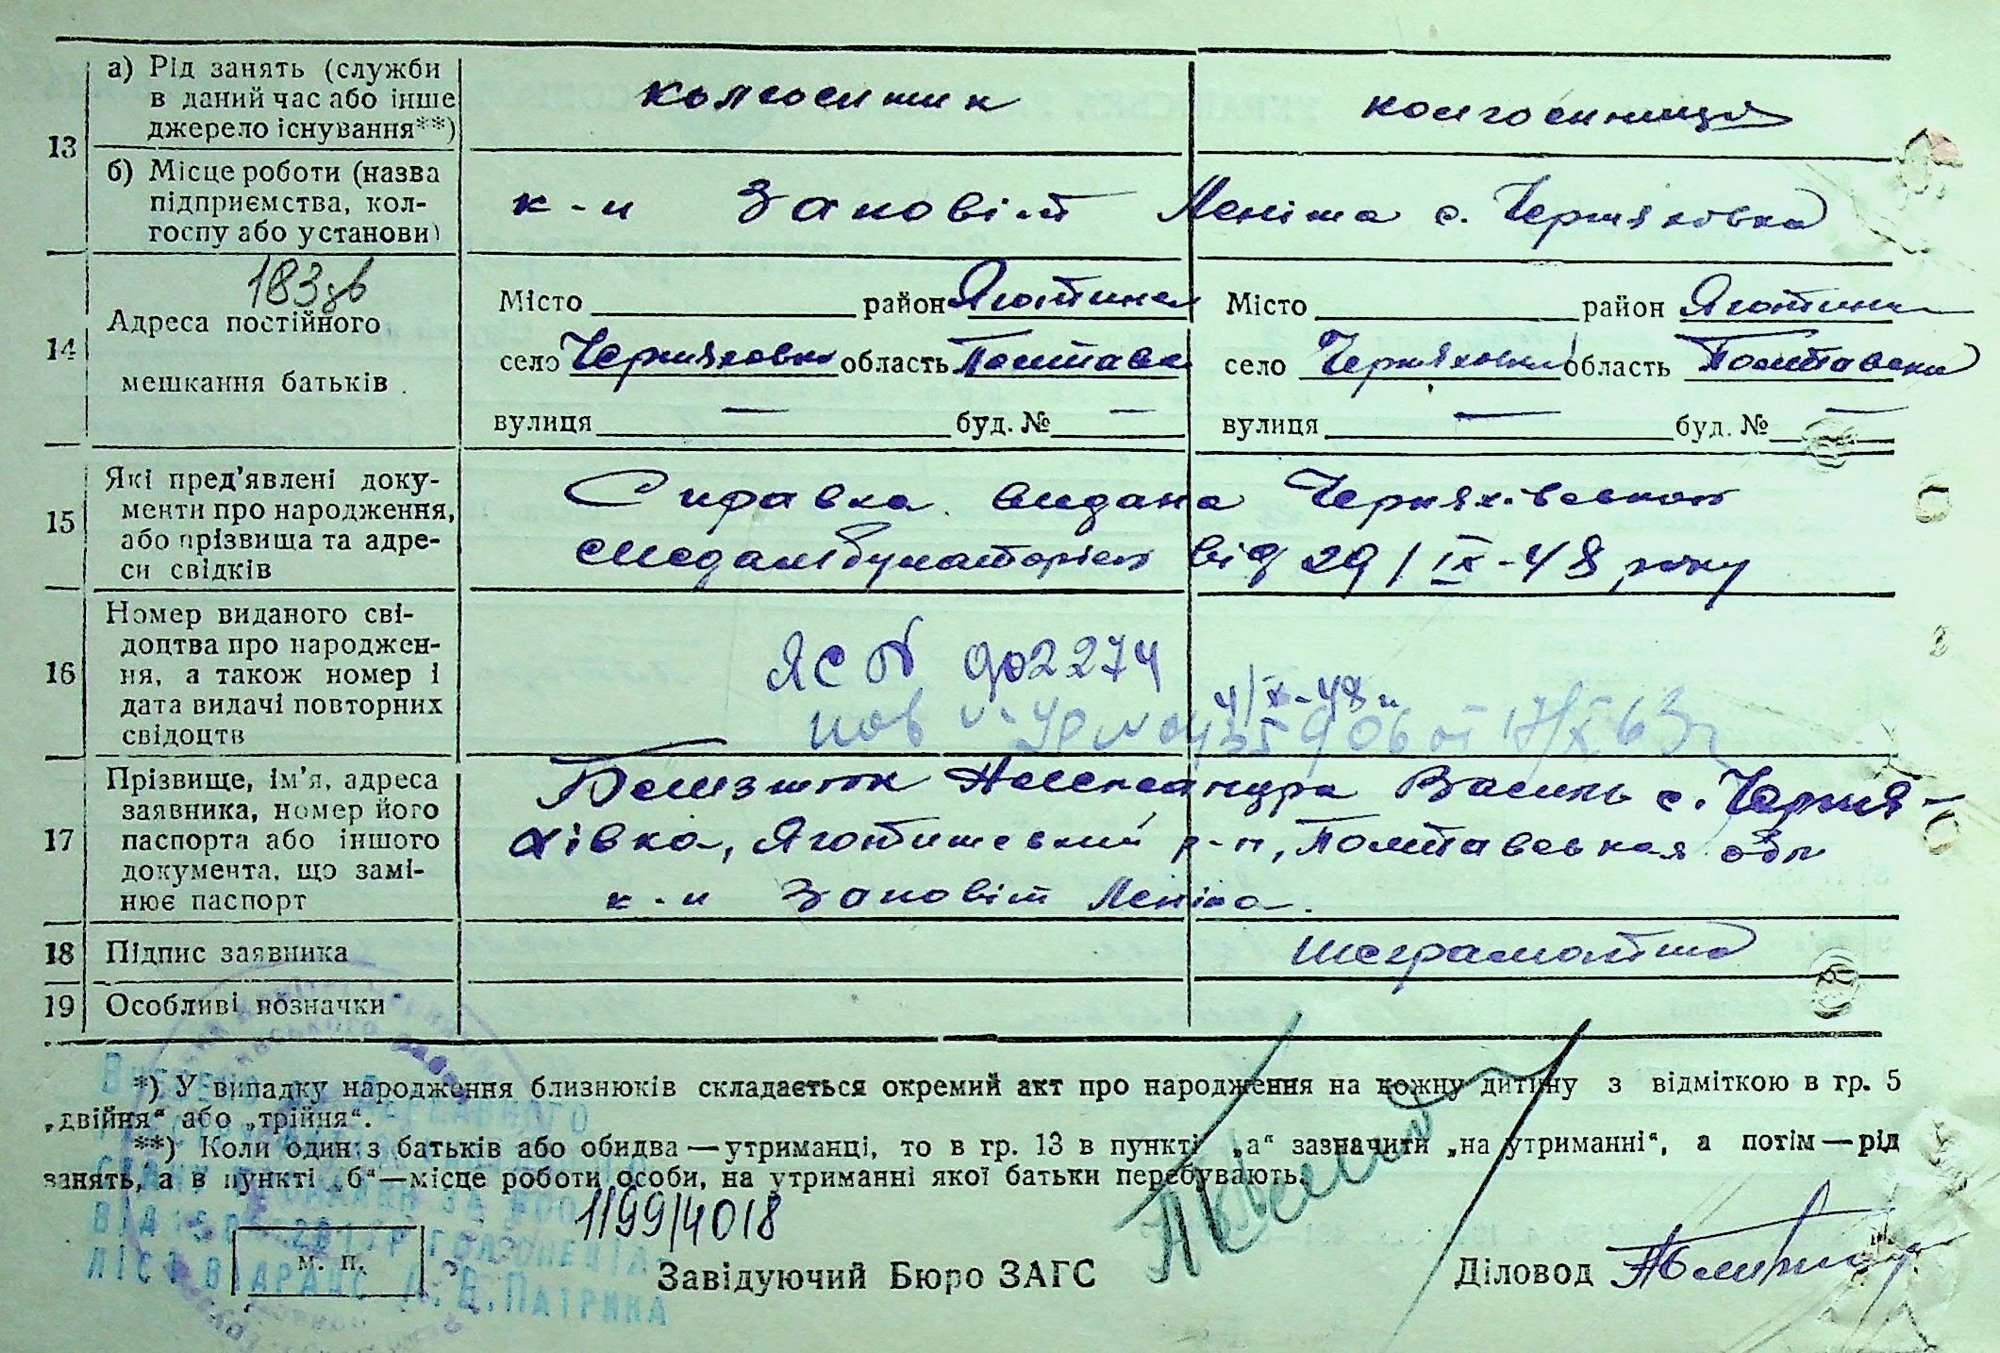 13
а) Рід занять (служби
в даний час або інше
джерело існування**)
колгоспник
колгоспниця
б) Місце роботи (назва
підприємства, кол-
госпу або установи)
к-п Заповіт Леніна с. Черняховка
14
183зв
Адреса постійного
мешкання батьків
Місто район Яготинск
село Черняховка область Полтавс
вулиця — буд. № —
Місто район Яготинс
село Черняховка область Полтавска
вулиця — буд. № —
15
Які пред'явлені доку-
менти про народження,
або прізвища та адре-
си свідків
Справка видана Черняхівском
медамбулаторієм від 29/IX-48 року
16
Номер виданого сві-
доцтва про народжен-
ня, а також номер і
дата видачі повторних
свідоцтв
ЯС № 902274
4/X-48 р
17/X 63г
17
Прізвище, ім'я, адреса
заявника, номер його
паспорта або іншого
документа, що замі-
нює паспорт
Александра Василь с. Черня-
хівка, Яготинський р-н, Полтавськая обл
к-п Заповіт Леніна.
18
Підпис заявника
неграмотна
19
Особливі позначки
*) У випадку народження близнюків складається окремий акт про народження на кожну дитину з відміткою в гр. 5
„двійня“ або „трійня“.
**) Коли один з батьків або обидва — утриманці, то в гр. 13 в пункті „а“ зазначити „на утриманні“, а потім — рід
занять, а в пункті „б“ — місце роботи особи, на утриманні якої батьки перебувають.
1199/4018
м. п.
Завідуючий Бюро ЗАГС
Діловод